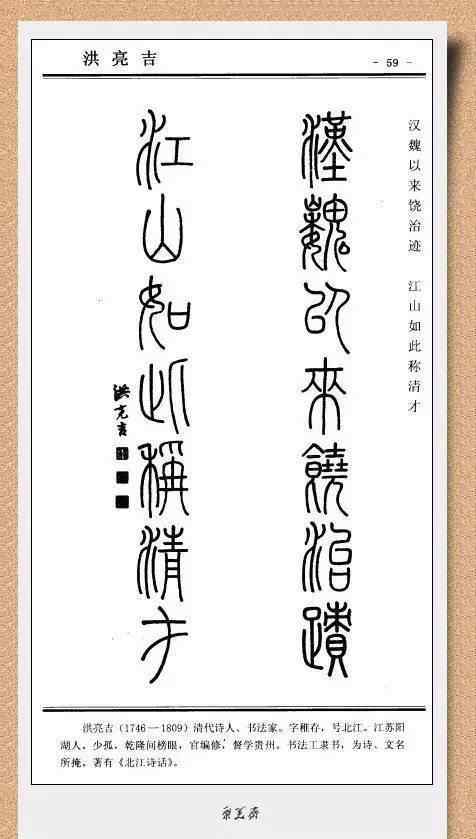 洪亮吉
- 59 -
汉魏以来饶治迹　江山如此称清才
漢魏以來饒治蹟
江山如此稱清才
洪亮吉
洪亮吉(1746—1809)清代诗人、书法家。字稚存，号北江。江苏阳
湖人。少孤，乾隆间榜眼，官编修，督学贵州。书法工隶书，为诗、文名
所掩，著有《北江诗话》。